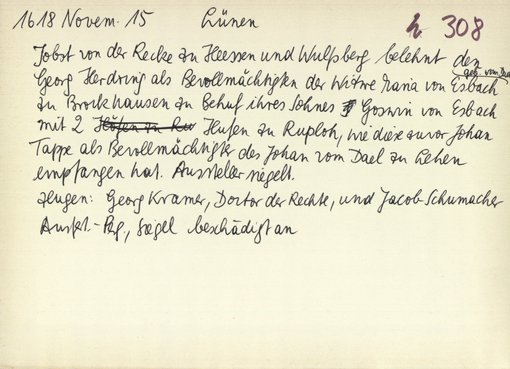 1618 Novem. 15 Lünen h 308
Jobst von der Recke zu Heessen und Wulfsberg belehnt den
Georg Herdring als Bevollmächtigten der Witwe Maria von Esbach geb. vom
zu Brockhausen zu Behuf ihres Sohnes Goswin von Esbach
mit 2 Höfen zu Ru Hufen zu Ruploh, wie diese zuvor Johan
Tappe als Bevollmächtigter des Johan vom Dael zu Lehen
empfangen hat. Aussteller siegelt.
Zeugen: Georg Kramer, Doctor der Rechte, und Jacob Schumacher
Ausf.-Pg., Siegel beschädigt an